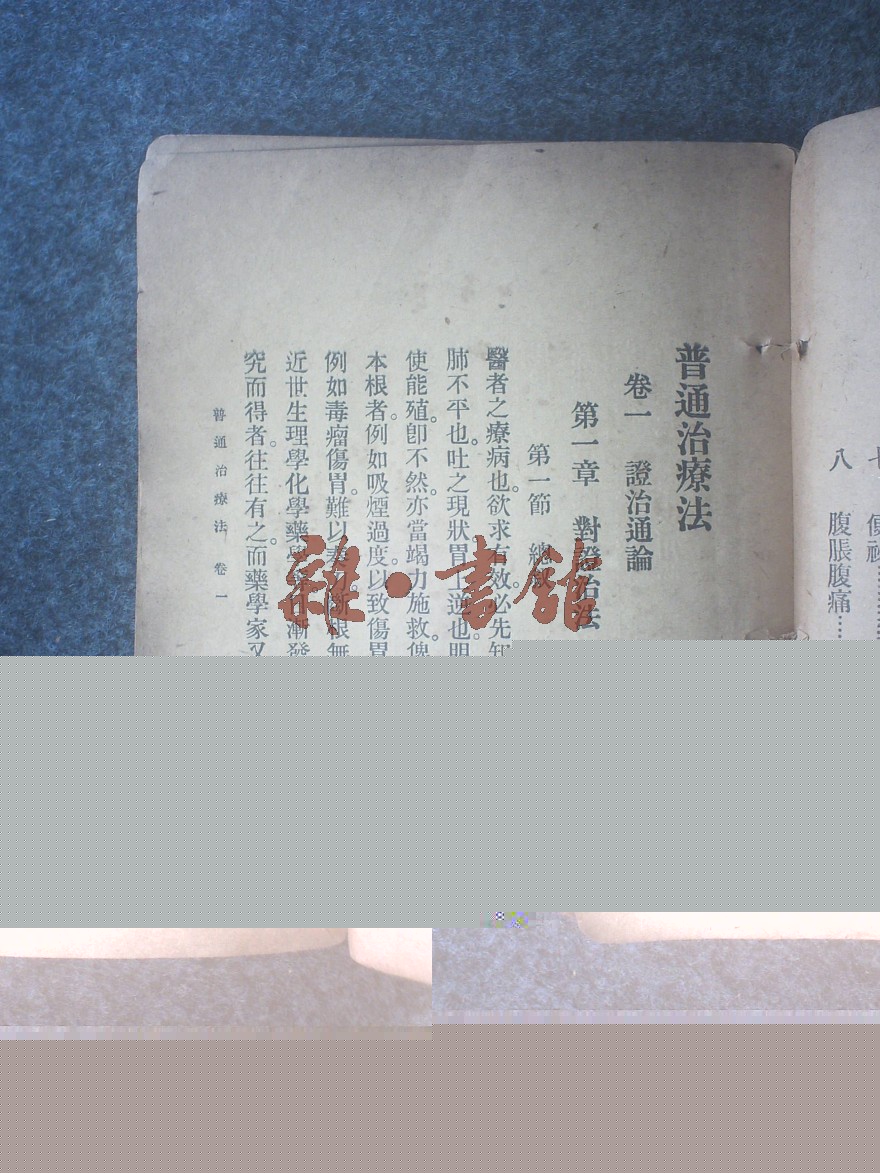 普通治療法
卷一　證治通論
第一章　對證治法
第一節　總
醫者之療病也。欲求有效。必先知
肺不平也。吐之現狀。胃上逆也。明
使能殖。卽不然。亦當竭力施救。俾
本根者。例如吸煙過度。以致傷胃
例如毒瘤傷胃。難以奏功。斷根無
近世生理學化學藥學漸發
究而得者。往往有之。而藥學家又
普通治療法　卷一
七　便祕
八　腹脹腹痛
雜·書館